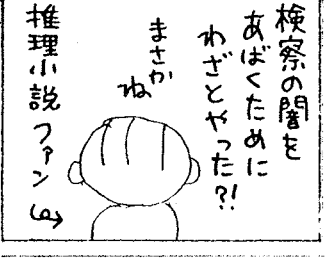 検察の闇を
あばくために
わざとやった?!
まさか
ね
推理小説ファン